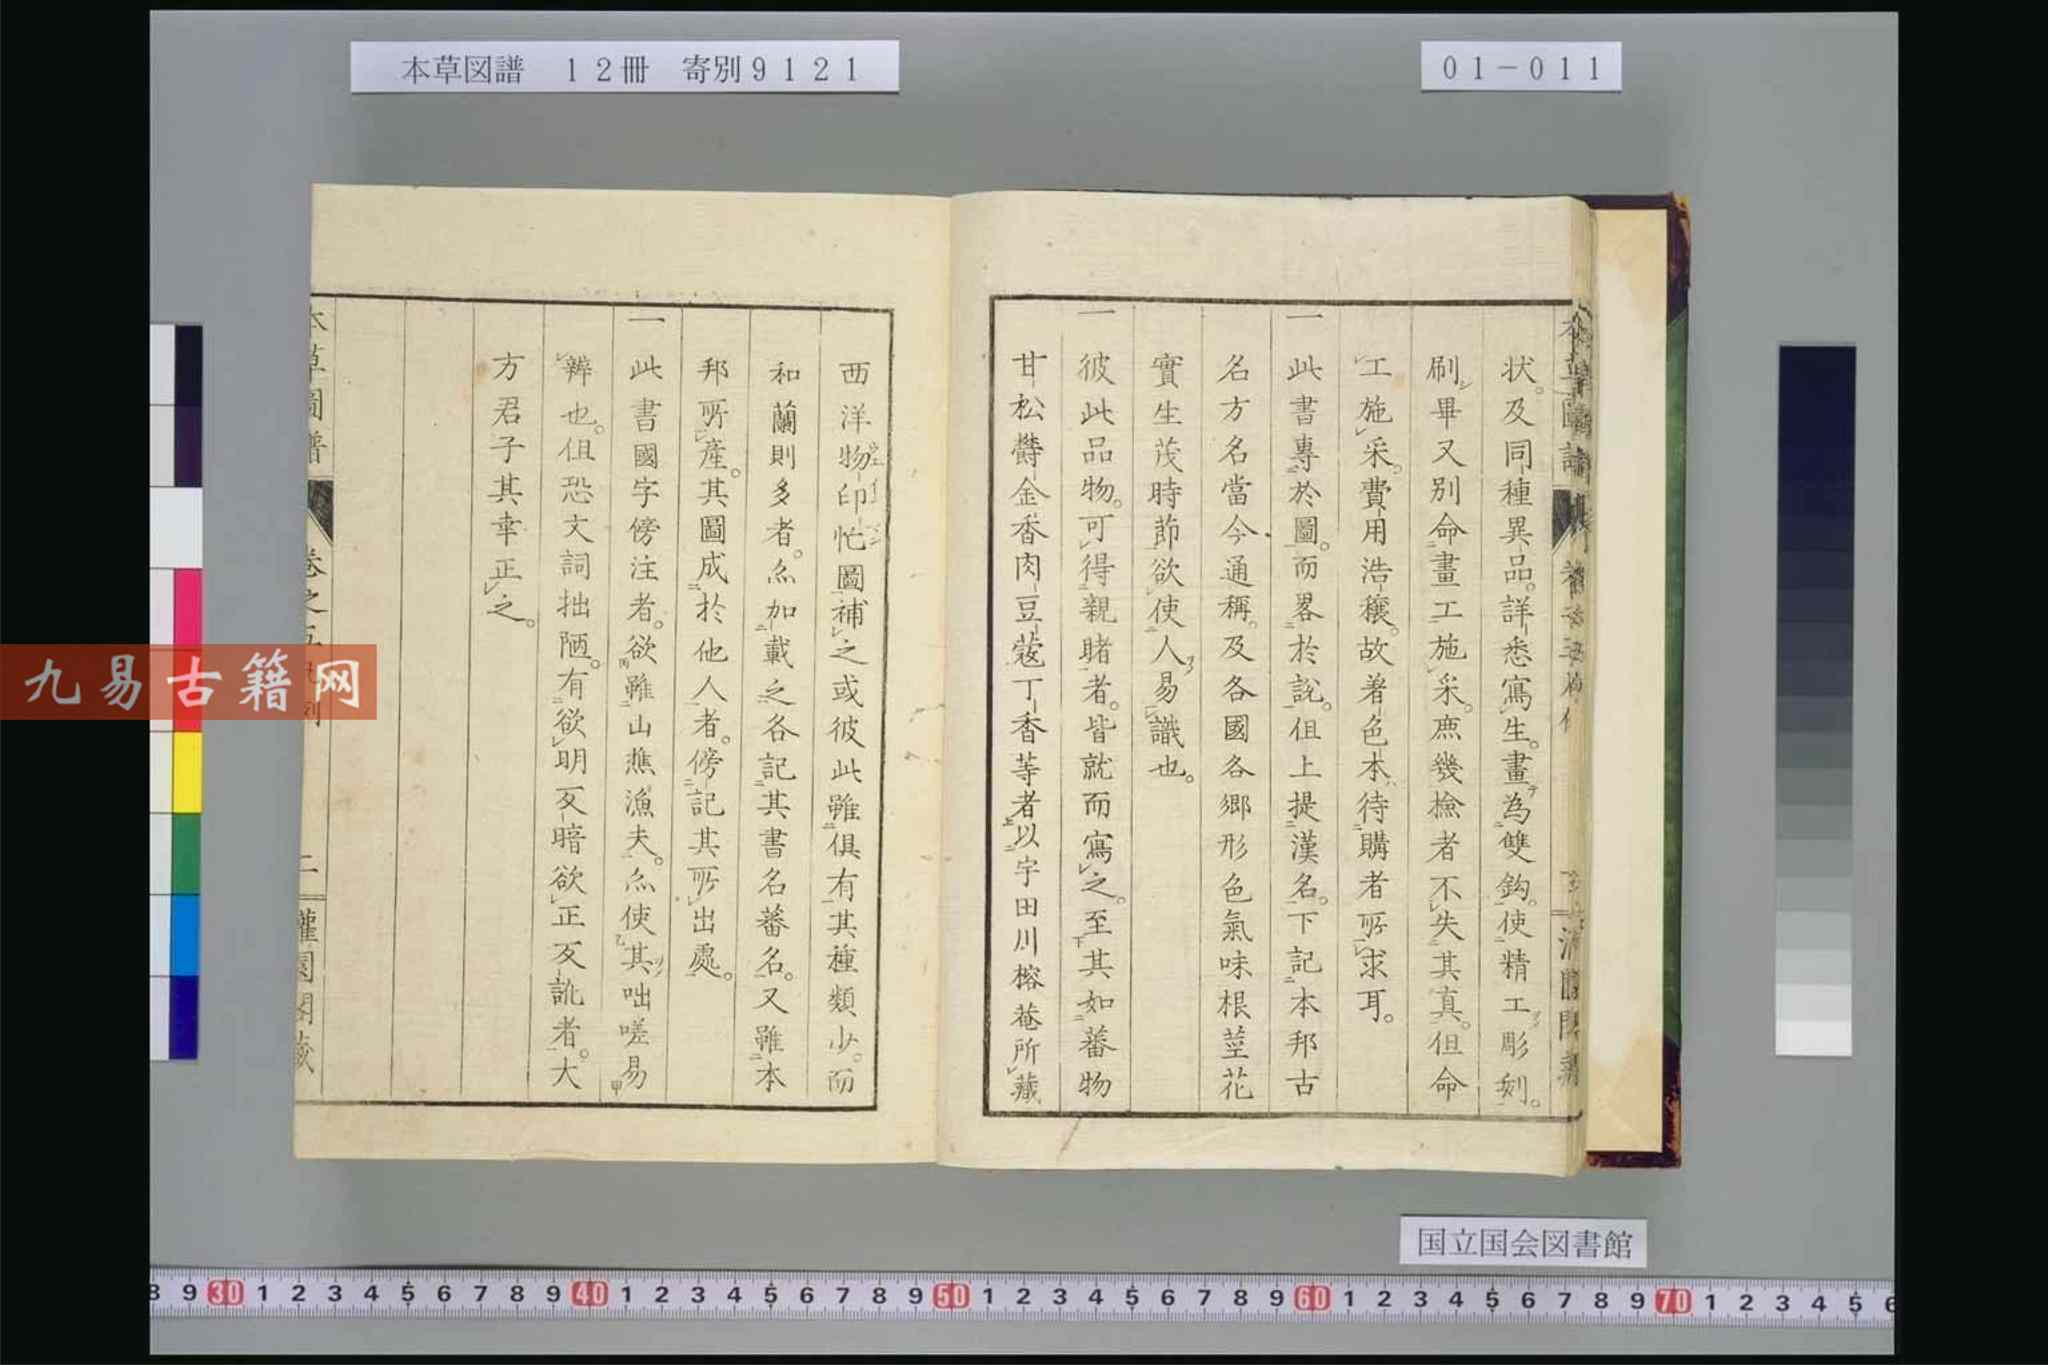 本草図譜　１２冊　寄別９１２１
０１－０１１
状。及同種異品。詳悉寫生。畫為雙鈎。使精工彫刻。
刷畢又別命畫工施采。庶幾檢者不失其真。但命
工施采。費用浩穰。故着色本待購者所求耳。
一此書專於圖。而畧於說。但上提漢名。下記本邦古
名方名當今通稱。及各國各鄉形色氣味根莖花
實生茂時節欲使人易識也。
一彼此品物。可得親賭者。皆就而寫之。至其如蕃物
甘松欝金香肉豆蔻丁香等者以宇田川榕菴所藏
西洋物印忙圖補之或彼此雖俱有其種類少。而
和蘭則多者。亦加載之各記其書名蕃名。又雖本
邦所產。其圖成於他人者。傍記其所出處。
一此書國字傍注者。欲雖山樵漁夫。亦使其咄嗟易
辨也。但恐文詞拙陋。有欲明反暗欲正反訛者。大
方君子其幸正之。
本草圖譜
卷之五
二
九易古籍网
国立国会図書館
8 9 30 1 2 3 4 5 6 7 8 9 40 1 2 3 4 5 6 7 8 9 50 1 2 3 4 5 6 7 8 9 60 1 2 3 4 5 6 7 8 9 70 1 2 3 4 5 6